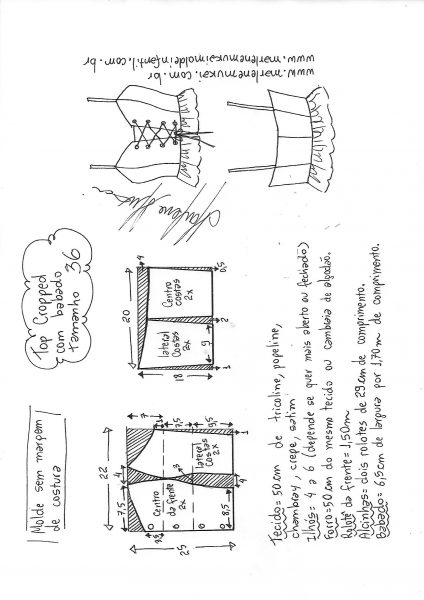 Molde sem margem
de costura
Top Cropped
com babado
tamanho 36
www.marlenemukai.com.br
www.marlenemukaimoldeinfantil.com.br
22
7,5
4
7
1
7,5
9,5
1
3
25
3,5
8,5
4
Centro
da frente
2x
lateral
costas
2x
20
4
18
0,5
2
9
1
lateral
costas
2x
Centro
costas
2x
Tecido=50cm de tricoline, popeline,
chambray, crepe, satim
Ilhós= 4 a 6 (depende se quer mais aberto ou fechado)
Forro=50 cm do mesmo tecido ou cambraia de algodão.
Rolotê da frente=1,50m
Alcinhas= dois rolotes de 29cm de comprimento.
Babado= 6,5cm de largura por 1,70m de comprimento.